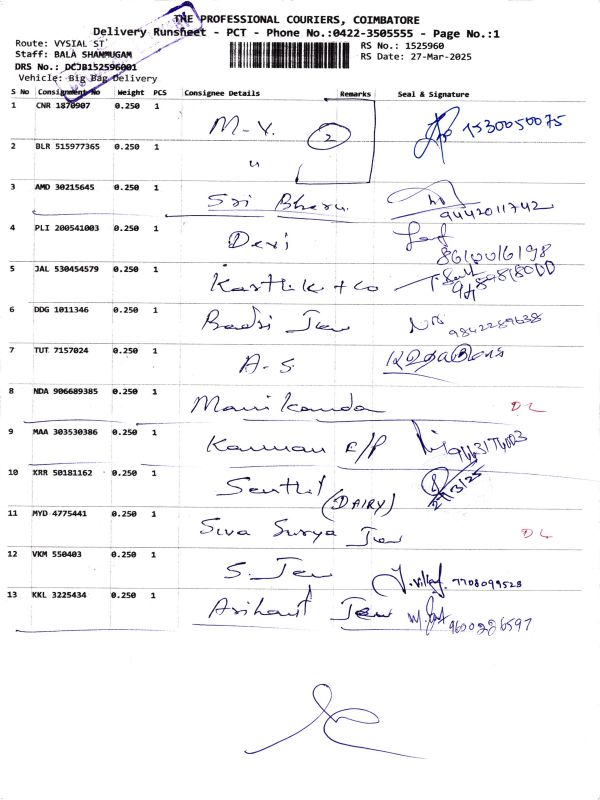 THE PROFESSIONAL COURIERS, COIMBATORE
Delivery Runsheet - PCT - Phone No.:0422-3505555 - Page No.:1
Route: VYSIAL ST
Staff: BALA SHANMUGAM
DRS No.: DCJB152596001
Vehicle: Big Bag Delivery
RS No.: 1525960
RS Date: 27-Mar-2025
S No Consignment No Weight PCS Consignee Details Remarks Seal & Signature
1 CNR 1870907 0.250 1 M-Y. 2
2 BLR 515977365 0.250 1 "
3 AMD 30215645 0.250 1 Sri 9442011742
4 PLI 200541003 0.250 1 Devi
5 JAL 530454579 0.250 1 Karthik + Co
6 DDG 1011346 0.250 1 Badri Jew 9842289638
7 TUT 7157024 0.250 1 A-S.
8 NDA 906689385 0.250 1 Manikanda DL
9 MAA 303530386 0.250 1 Kannan E/P
10 KRR 50181162 0.250 1 Senthil (DAIRY) 27/3/25
11 MYD 4775441 0.250 1 Siva Surya Jew DL
12 VKM 550403 0.250 1 S. Jew 7708099528
13 KKL 3225434 0.250 1 Arihant Jew 9600286597